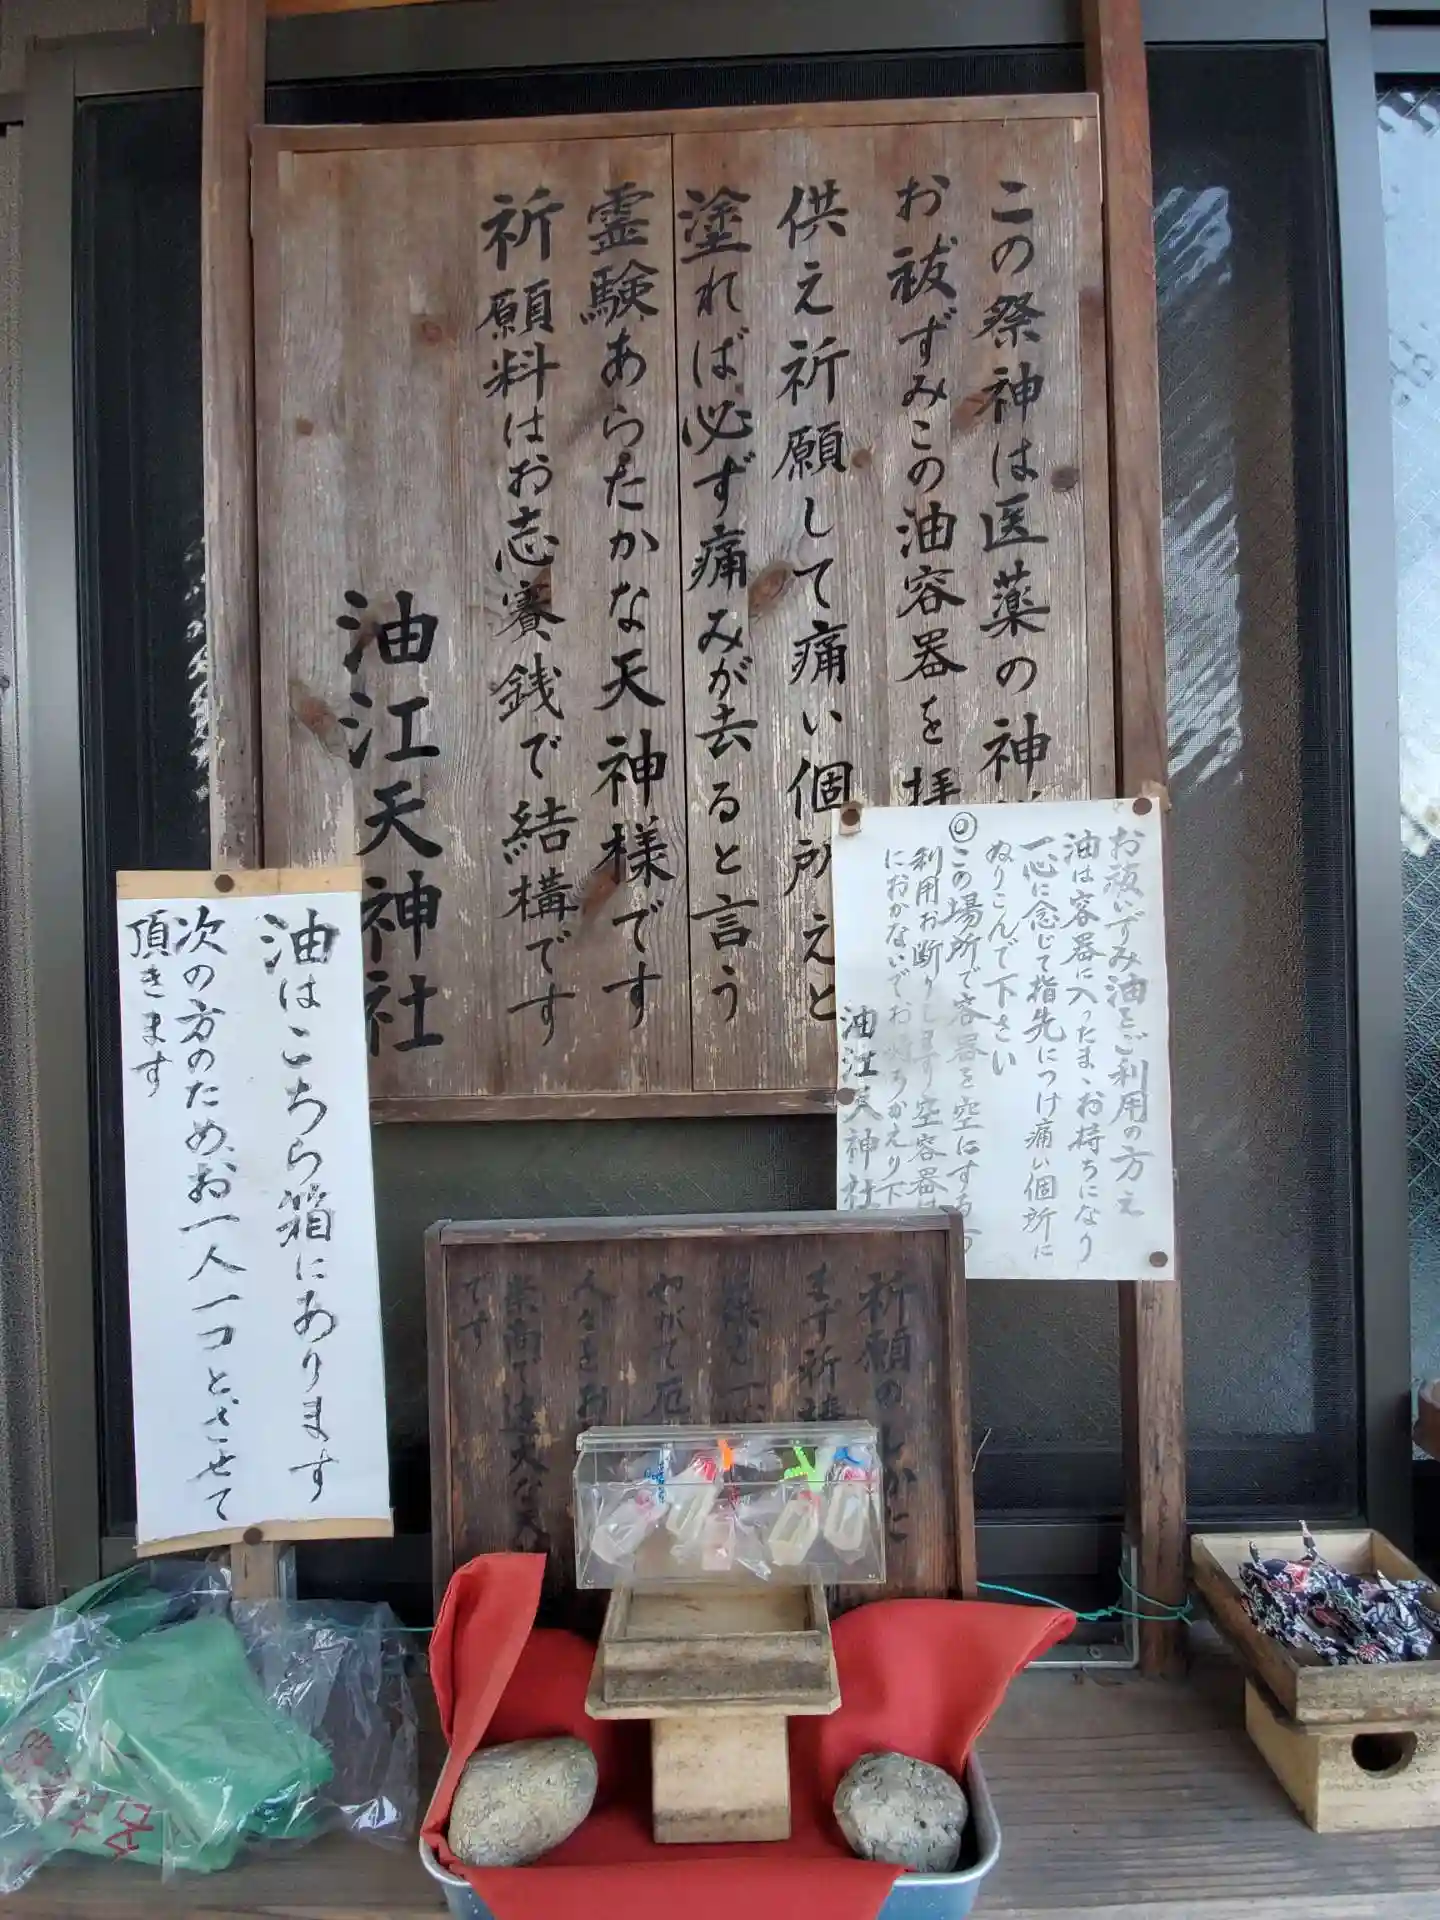 この祭神は医薬の神
お祓ずみこの油容器を拝
供え祈願して痛い個所えと
塗れば必ず痛みが去ると言う
霊験あらたかな天神様です
祈願料はお志賽銭で結構です
油江天神社
お祓いずみ油をご利用の方え
油は容器に入ったまゝお持ちになり
一心に念じて指先につけ痛い個所に
ぬりこんで下さい
◎この場所で容器を空にする
利用お断りします空容器は
におかないでお持ちかえり下
油江天神社
油はこちら箱にあります
次の方のため、お一人一コとさせて
頂きます
祈願のしかた
まず祈
やがて厄
人々をお
崇高で偉大な天
です